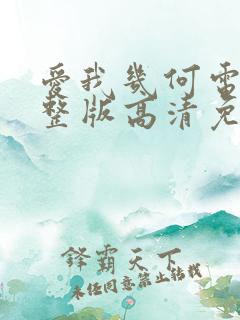 愛我幾何雷
整版高清免
鋒霸天下
未经同意禁止转载